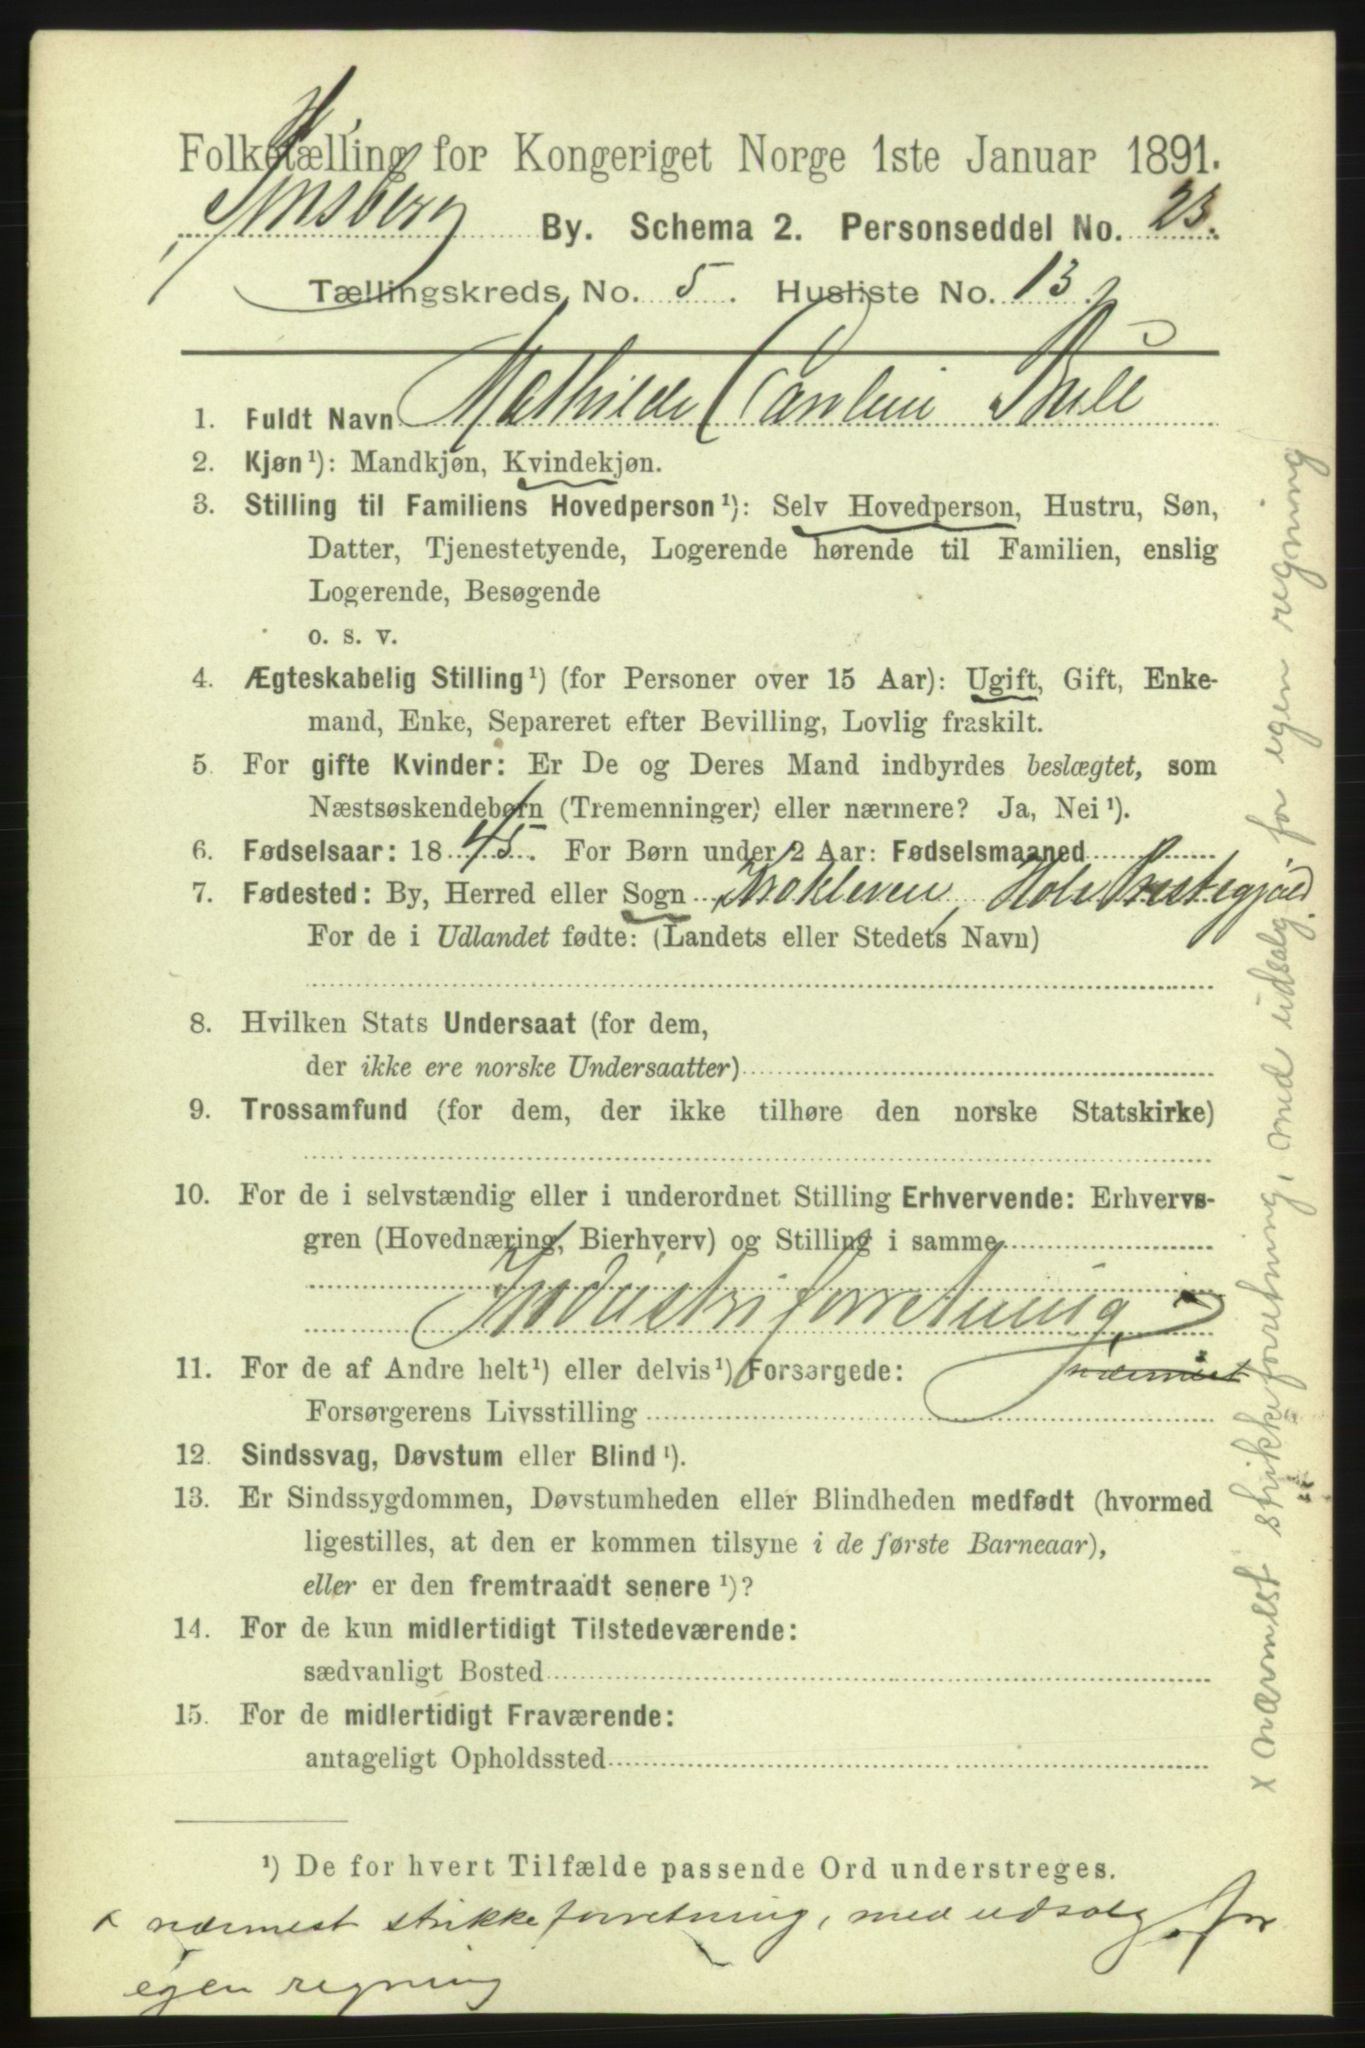 Folketælling for Kongeriget Norge 1ste Januar 1891.
Tønsberg By. Schema 2. Personseddel No. 23.
Tællingskreds No. 5. Husliste No. 13.
1. Fuldt Navn Mathilde Caroline Bull
2. Kjøn¹): Mandkjøn, Kvindekjøn.
3. Stilling til Familiens Hovedperson¹): Selv Hovedperson, Hustru, Søn,
Datter, Tjenestetyende, Logerende hørende til Familien, enslig
Logerende, Besøgende
o. s. v.
4. Ægteskabelig Stilling¹) (for Personer over 15 Aar): Ugift, Gift, Enke-
mand, Enke, Separeret efter Bevilling, Lovlig fraskilt.
5. For gifte Kvinder: Er De og Deres Mand indbyrdes beslægtet, som
Næstsøskendebørn (Tremenninger) eller nærmere? Ja, Nei¹).
6. Fødselsaar: 1845. For Børn under 2 Aar: Fødselsmaaned
7. Fødested: By, Herred eller Sogn Krokleven, Hole Prestegjæld.
For de i Udlandet fødte: (Landets eller Stedets Navn)
8. Hvilken Stats Undersaat (for dem,
der ikke ere norske Undersaatter)
9. Trossamfund (for dem, der ikke tilhøre den norske Statskirke)
10. For de i selvstændig eller i underordnet Stilling Erhvervende: Erhvervs-
gren (Hovednæring, Bierhverv) og Stilling i samme
Industriforretning
11. For de af Andre helt¹) eller delvis¹) Forsørgede: nærmest
Forsørgerens Livsstilling
12. Sindssvag, Døvstum eller Blind¹).
13. Er Sindssygdommen, Døvstumheden eller Blindheden medfødt (hvormed
ligestilles, at den er kommen tilsyne i de første Barneaar),
eller er den fremtraadt senere¹)?
14. For de kun midlertidigt Tilstedeværende:
sædvanligt Bosted
15. For de midlertidigt Fraværende:
antageligt Opholdssted
¹) De for hvert Tilfælde passende Ord understreges.
x nærmest strikkeforretning, med udsalg, for
egen regning
x nærmest strikkeforretning, med udsalg for egen regning